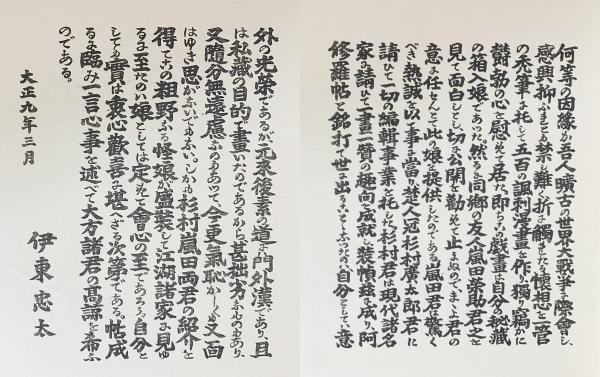 何等の因縁か吾人曠古の世界大戰爭に際會し、
感興抑ふること禁じ難く折に觸れたる懷想を一管
の禿筆に托して五百の諷刺漫畫を作り獨り竊かに
欝勃の心を慰めて居た、即ちこの戲畫は自分の秘藏
の箱入娘であつた。然るに同鄕の友人嵐田榮助君之を
見て面白しとし切に公開を勸めて止まぬのでまゝよ君の
意に任せんとて此の娘を提供したのである。嵐田君は驚く
べき熱誠を以て事に當り楚人冠杉村廣太郎君に
請ひて一切の編輯事業を托し、杉村君は現代諸名
家に請ひて一畫一贊の趣向を成就し裝幀玆に成り阿
修羅帖と銘打て世に出ることゝなつたのは自分としては意
外の光榮であるが元來後素の道は門外漢であり、且
は私藏の目的で畫いたのであるから甚拙劣なものもあり、
又隨分無遠慮なのもあつて、今更氣恥かしく又面
はゆき思がないでもない。しかも杉村嵐田兩君の紹介を
得てこの粗野なる怪娘が盛裝して江湖諸家に見ゆ
るに至たのは娘としては定めて會心の至であらう。自分と
しても實は衷心歡喜に堪へざる次第である。帖成
るに臨み一言心事を述べて大方諸君の高諒を希ふ
のである。
大正九年三月
伊東忠太